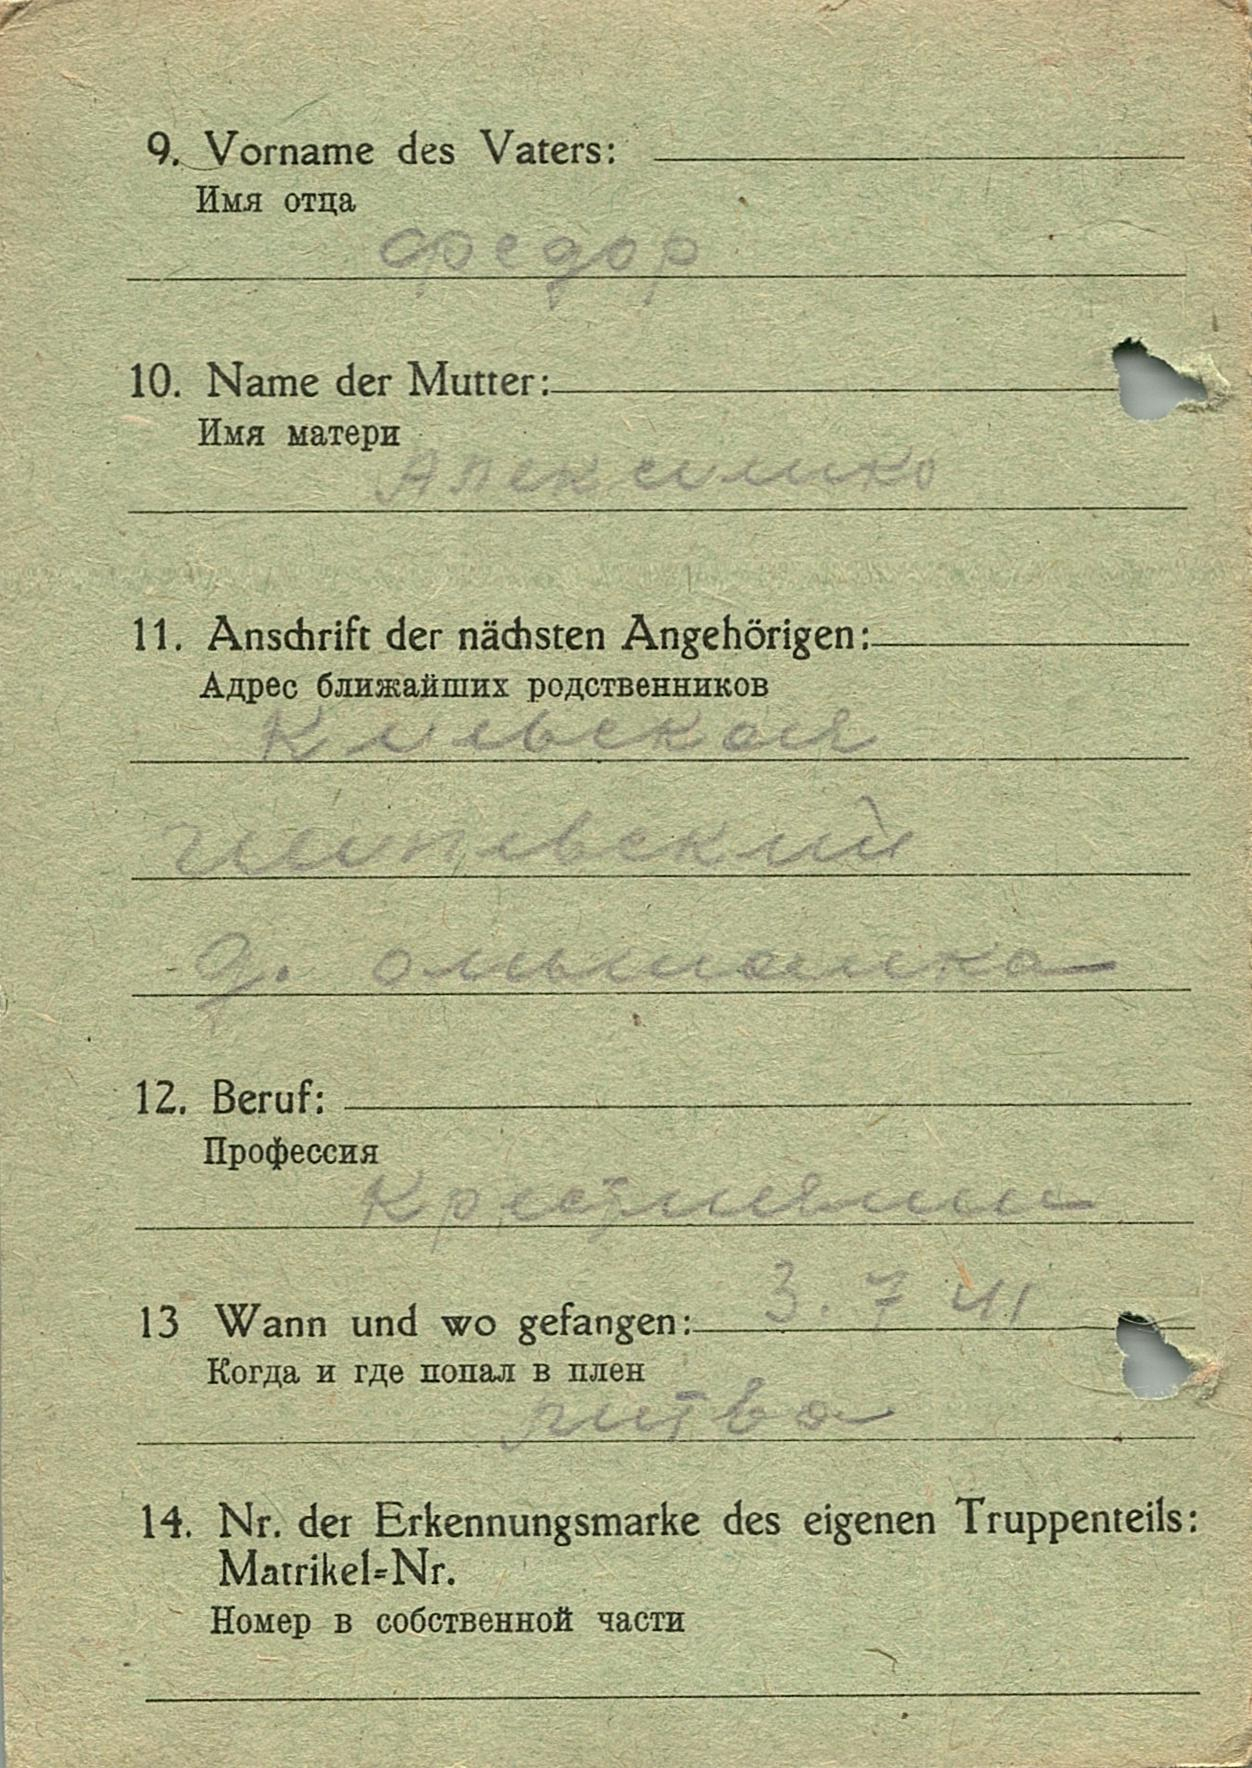 9. Vorname des Vaters:
Имя отца
Федор
10. Name der Mutter:
Имя матери
11. Anschrift der nächsten Angehörigen:
Адрес ближайших родственников
д. ольшанка
12. Beruf:
Профессия
13 Wann und wo gefangen: 3. 7 41
Когда и где попал в плен
литва
14. Nr. der Erkennungsmarke des eigenen Truppenteils:
Matrikel=Nr.
Номер в собственной части